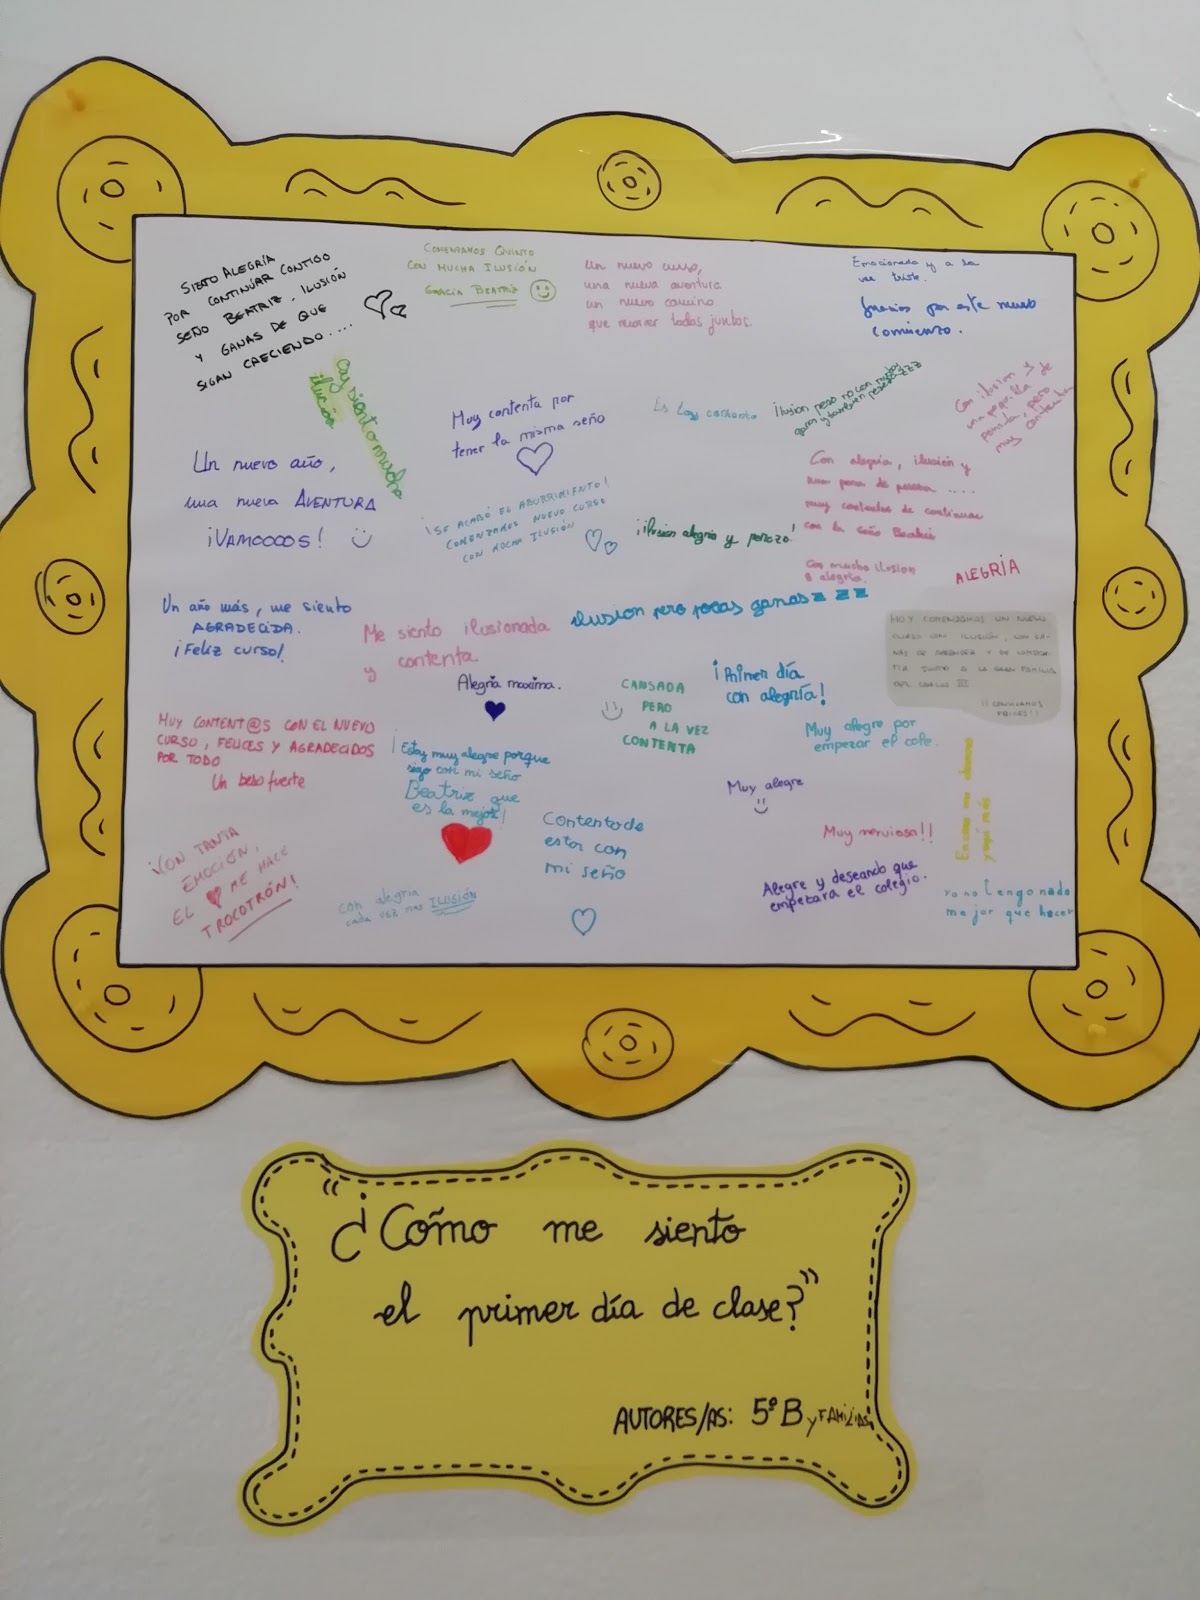 SIENTO ALEGRÍA
POR CONTINUAR CONTIGO
SEÑO BEATRIZ. ILUSIÓN
Y GANAS DE QUE
SIGAN CRECIENDO....
COMENZAMOS QUINTO
CON MUCHA ILUSIÓN
GRACIA BEATRIZ
Un nuevo curso,
una nueva aventura
un nuevo camino
que recorrer todas juntos.
Emocionada y a la
vez triste.
Gracias por este nuevo
comienzo.
siento mucha
ilución
Muy contenta por
tener la misma seño
Es toy contento
ilusion pero no con muchas
ganas y tambien pereza ZZZ
Con ilusion y
una poquilla de
pero
muy contenta
Un nuevo año,
una nueva AVENTURA
¡VAMOOOOS!
¡SE ACABÓ EL ABURRIMIENTO!
COMENZAMOS NUEVO CURSO
CON MUCHA ILUSIÓN
¡ilusion alegria y perozo!
Con alegria, ilusión y
una pena de pereza ....
muy contentos de continuar
con la seño Beatriz
Con mucho ilusion
alegria.
ALEGRÍA
Un año más, me siento
AGRADECIDA.
¡FELIZ CURSO!
Me siento ilusionada
y contenta
ilusion pero pocas ganas z z z
HOY COMENZAMOS UN NUEVO
CURSO CON ILUSIÓN, CON GA-
NAS DE APRENDER Y DE COMPAR-
TIR JUNTO A LA GRAN FAMILIA
DEL CARLOS III
Alegria maxima.
CANSADA
PERO
A LA VEZ
CONTENTA
¡Primer día
con alegría!
MUY CONTENT@S CON EL NUEVO
CURSO, FELICES Y AGRADECIDOS
POR TODO
Un beso fuerte
¡Estoy muy alegre porque
sigo con mi seño
Beatriz que
es la mejor!
Muy alegre por
empezar el cole.
Muy alegre
Contento de
estar con
mi seño
Muy nerviosa!!
En casa me aburro
y aqui más
¡CON TANTA
EMOCIÓN,
EL ME HACE
TROCOTRÓN!
con alegria
cada vez mas ILUSIÓN
Alegre y deseando que
empezara el colegio.
yo no tengo nada
mejor que hacer
"¿Cómo me siento
el primer día de clase?"
AUTORES/AS: 5º B y FAMILIAS